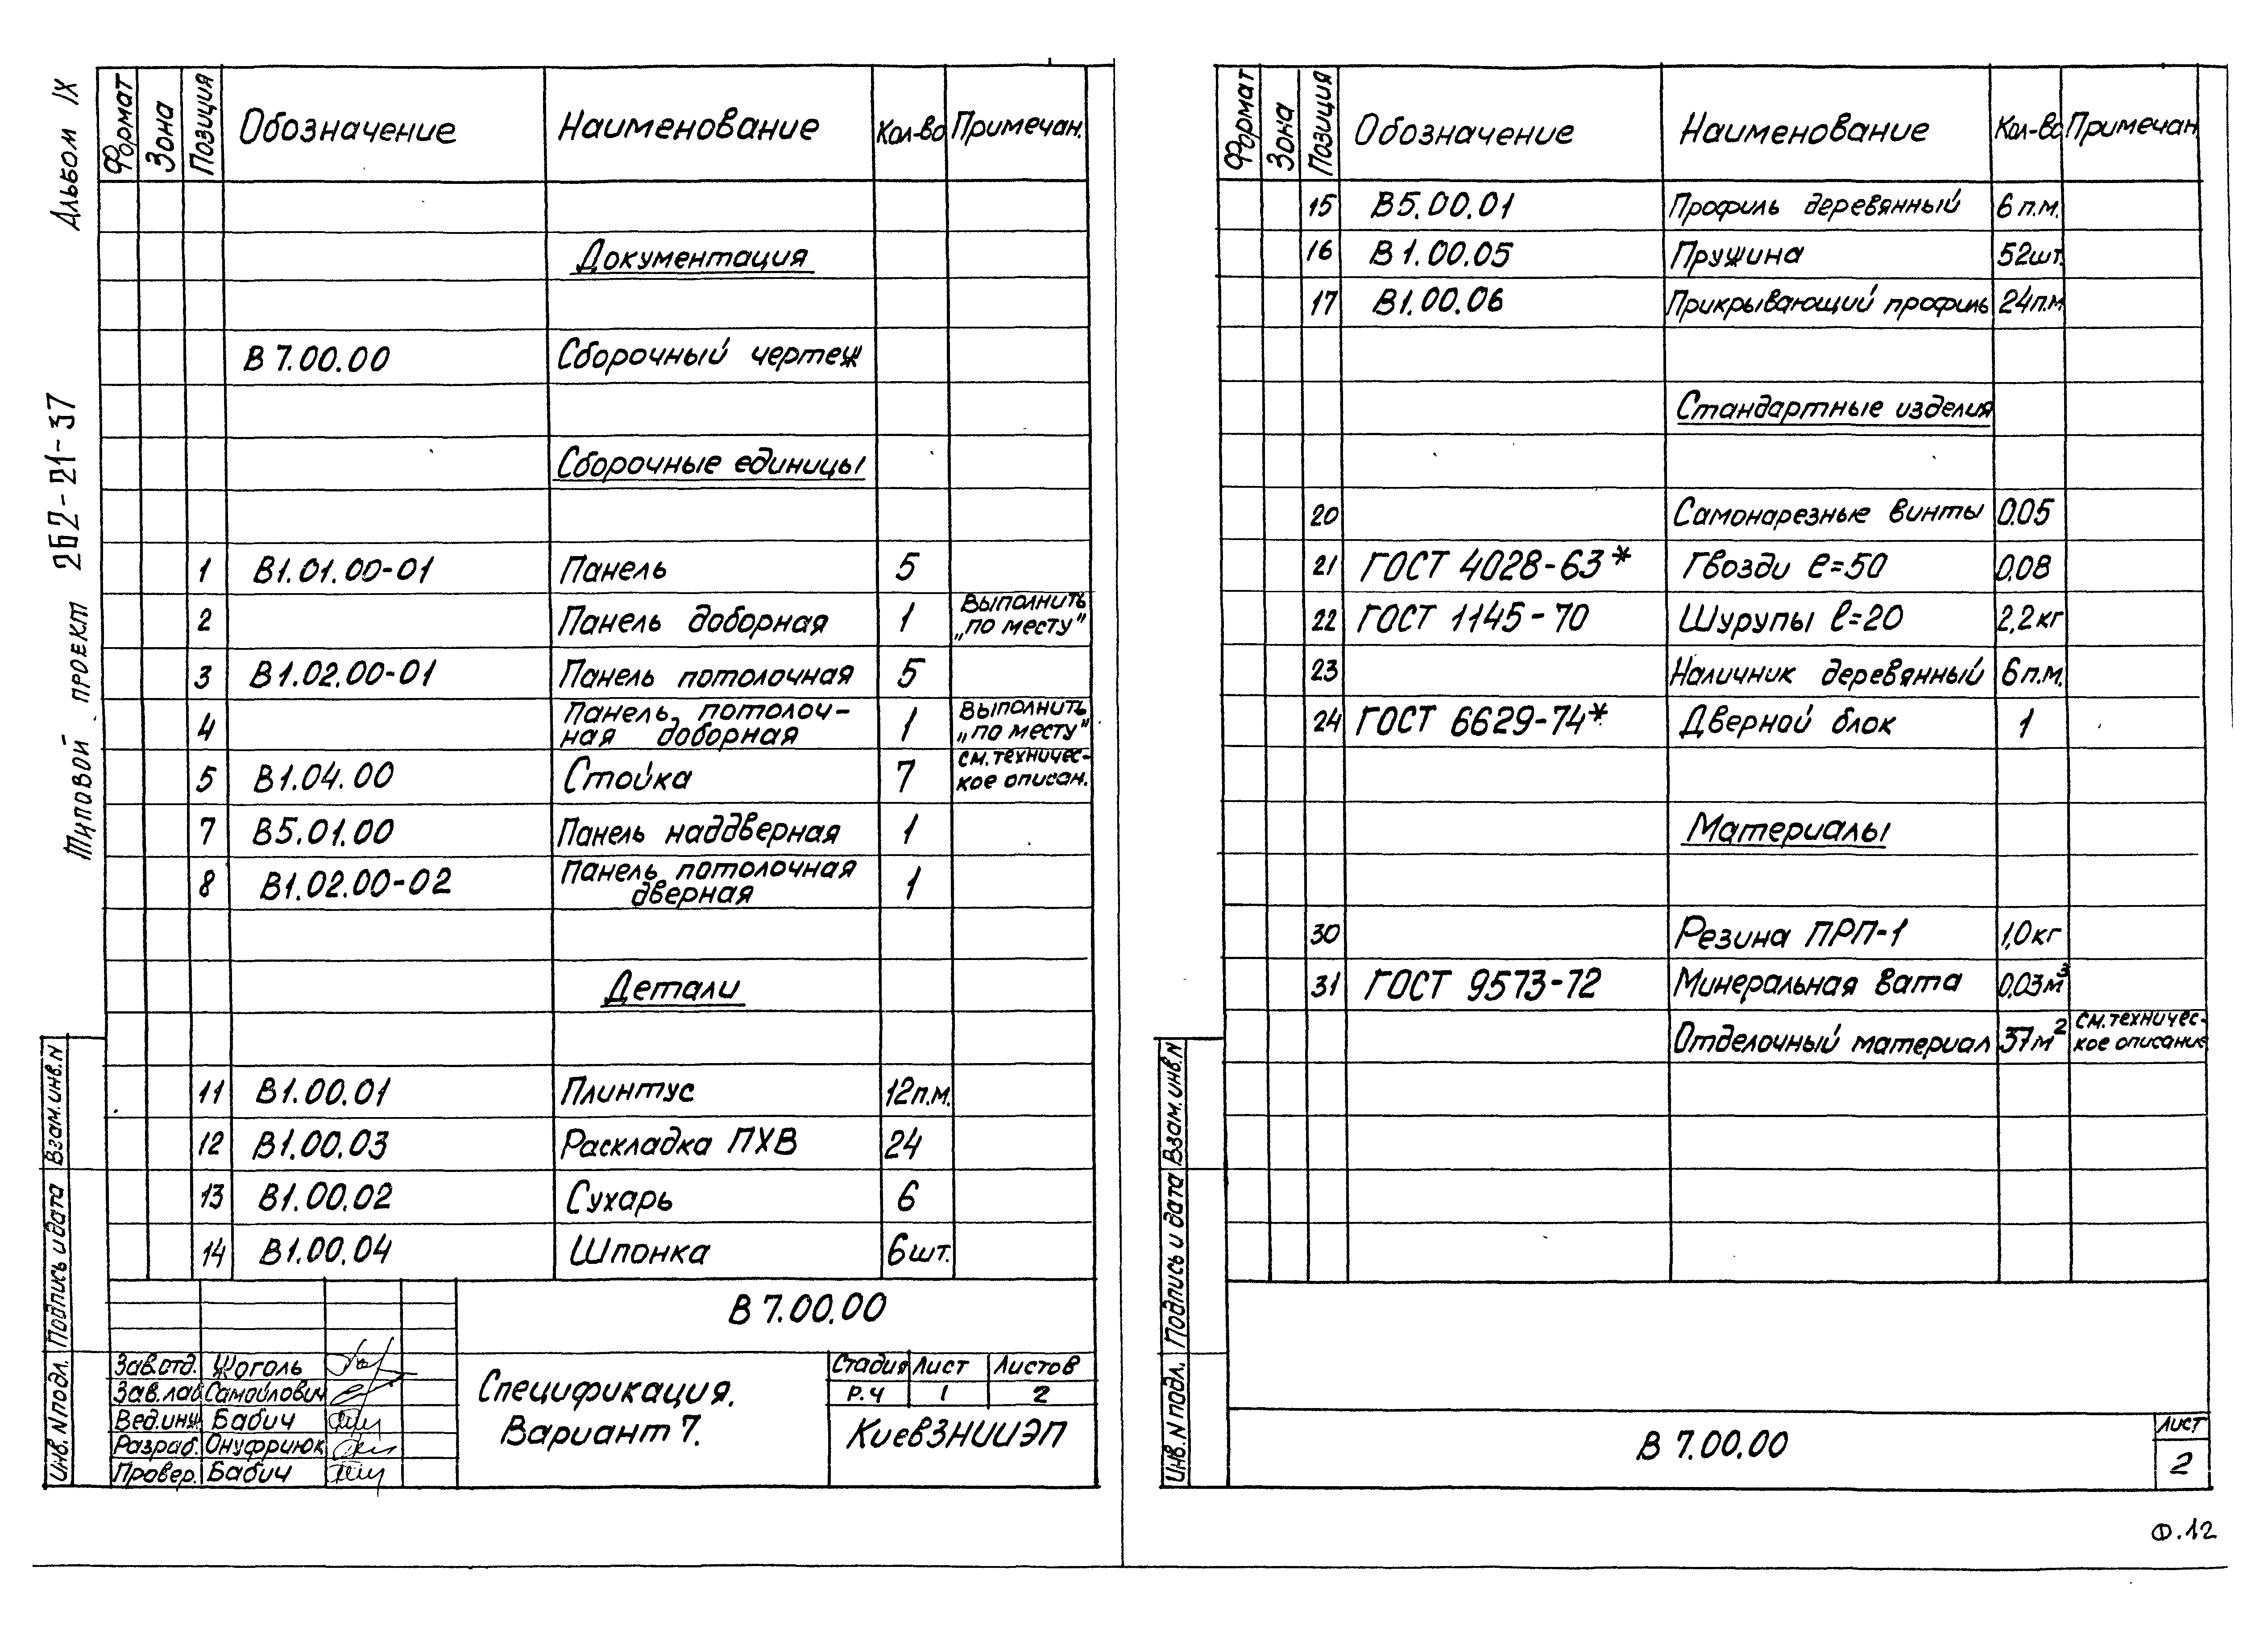 Альбом IX
Типовой проект 262-21-37
Формат Зона Позиция Обозначение Наименование Кол-во Примечан.
Документация
В 7.00.00 Сборочный чертеж
Сборочные единицы
1 В1.01.00-01 Панель 5
2 Панель доборная 1 Выполнить „по месту"
3 В1.02.00-01 Панель потолочная 5
4 Панель потолоч-
ная доборная 1 Выполнить „по месту"
5 В1.04.00 Стойка 7 см. техничес-
кое описан.
7 В5.01.00 Панель наддверная 1
8 В1.02.00-02 Панель потолочная
дверная 1
Детали
11 В1.00.01 Плинтус 12п.м.
12 В1.00.03 Раскладка ПХВ 24
13 В1.00.02 Сухарь 6
14 В1.00.04 Шпонка 6шт.
В 7.00.00
Зав.отд. Жоголь
Зав.лаб Самойлович
Вед.инж Бабич
Разраб. Онуфриюк
Провер. Бабич
Спецификация.
Вариант 7.
Стадия Лист Листов
Р.Ч 1 2
КиевЗНИИЭП
Инв.N подл. Подпись и дата Взам.инв.N
Формат Зона Позиция Обозначение Наименование Кол-во Примечан
15 В5.00.01 Профиль деревянный 6 п.м.
16 В1.00.05 Пружина 52шт.
17 В1.00.06 Прикрывающий профиль 24п.м
Стандартные изделия
20 Самонарезные винты 0.05
21 ГОСТ 4028-63* Гвозди е=50 0.08
22 ГОСТ 1145-70 Шурупы ℓ=20 2,2кг
23 Наличник деревянный 6п.м.
24 ГОСТ 6629-74* Дверной блок 1
Материалы
30 Резина ПРП-1 1,0кг
31 ГОСТ 9573-72 Минеральная вата 0,03м³
Отделочный материал 37м² см. техничес-
кое описание
Инв.N подл. Подпись и дата Взам.инв.N
В 7.00.00
Лист
2
Ф.12